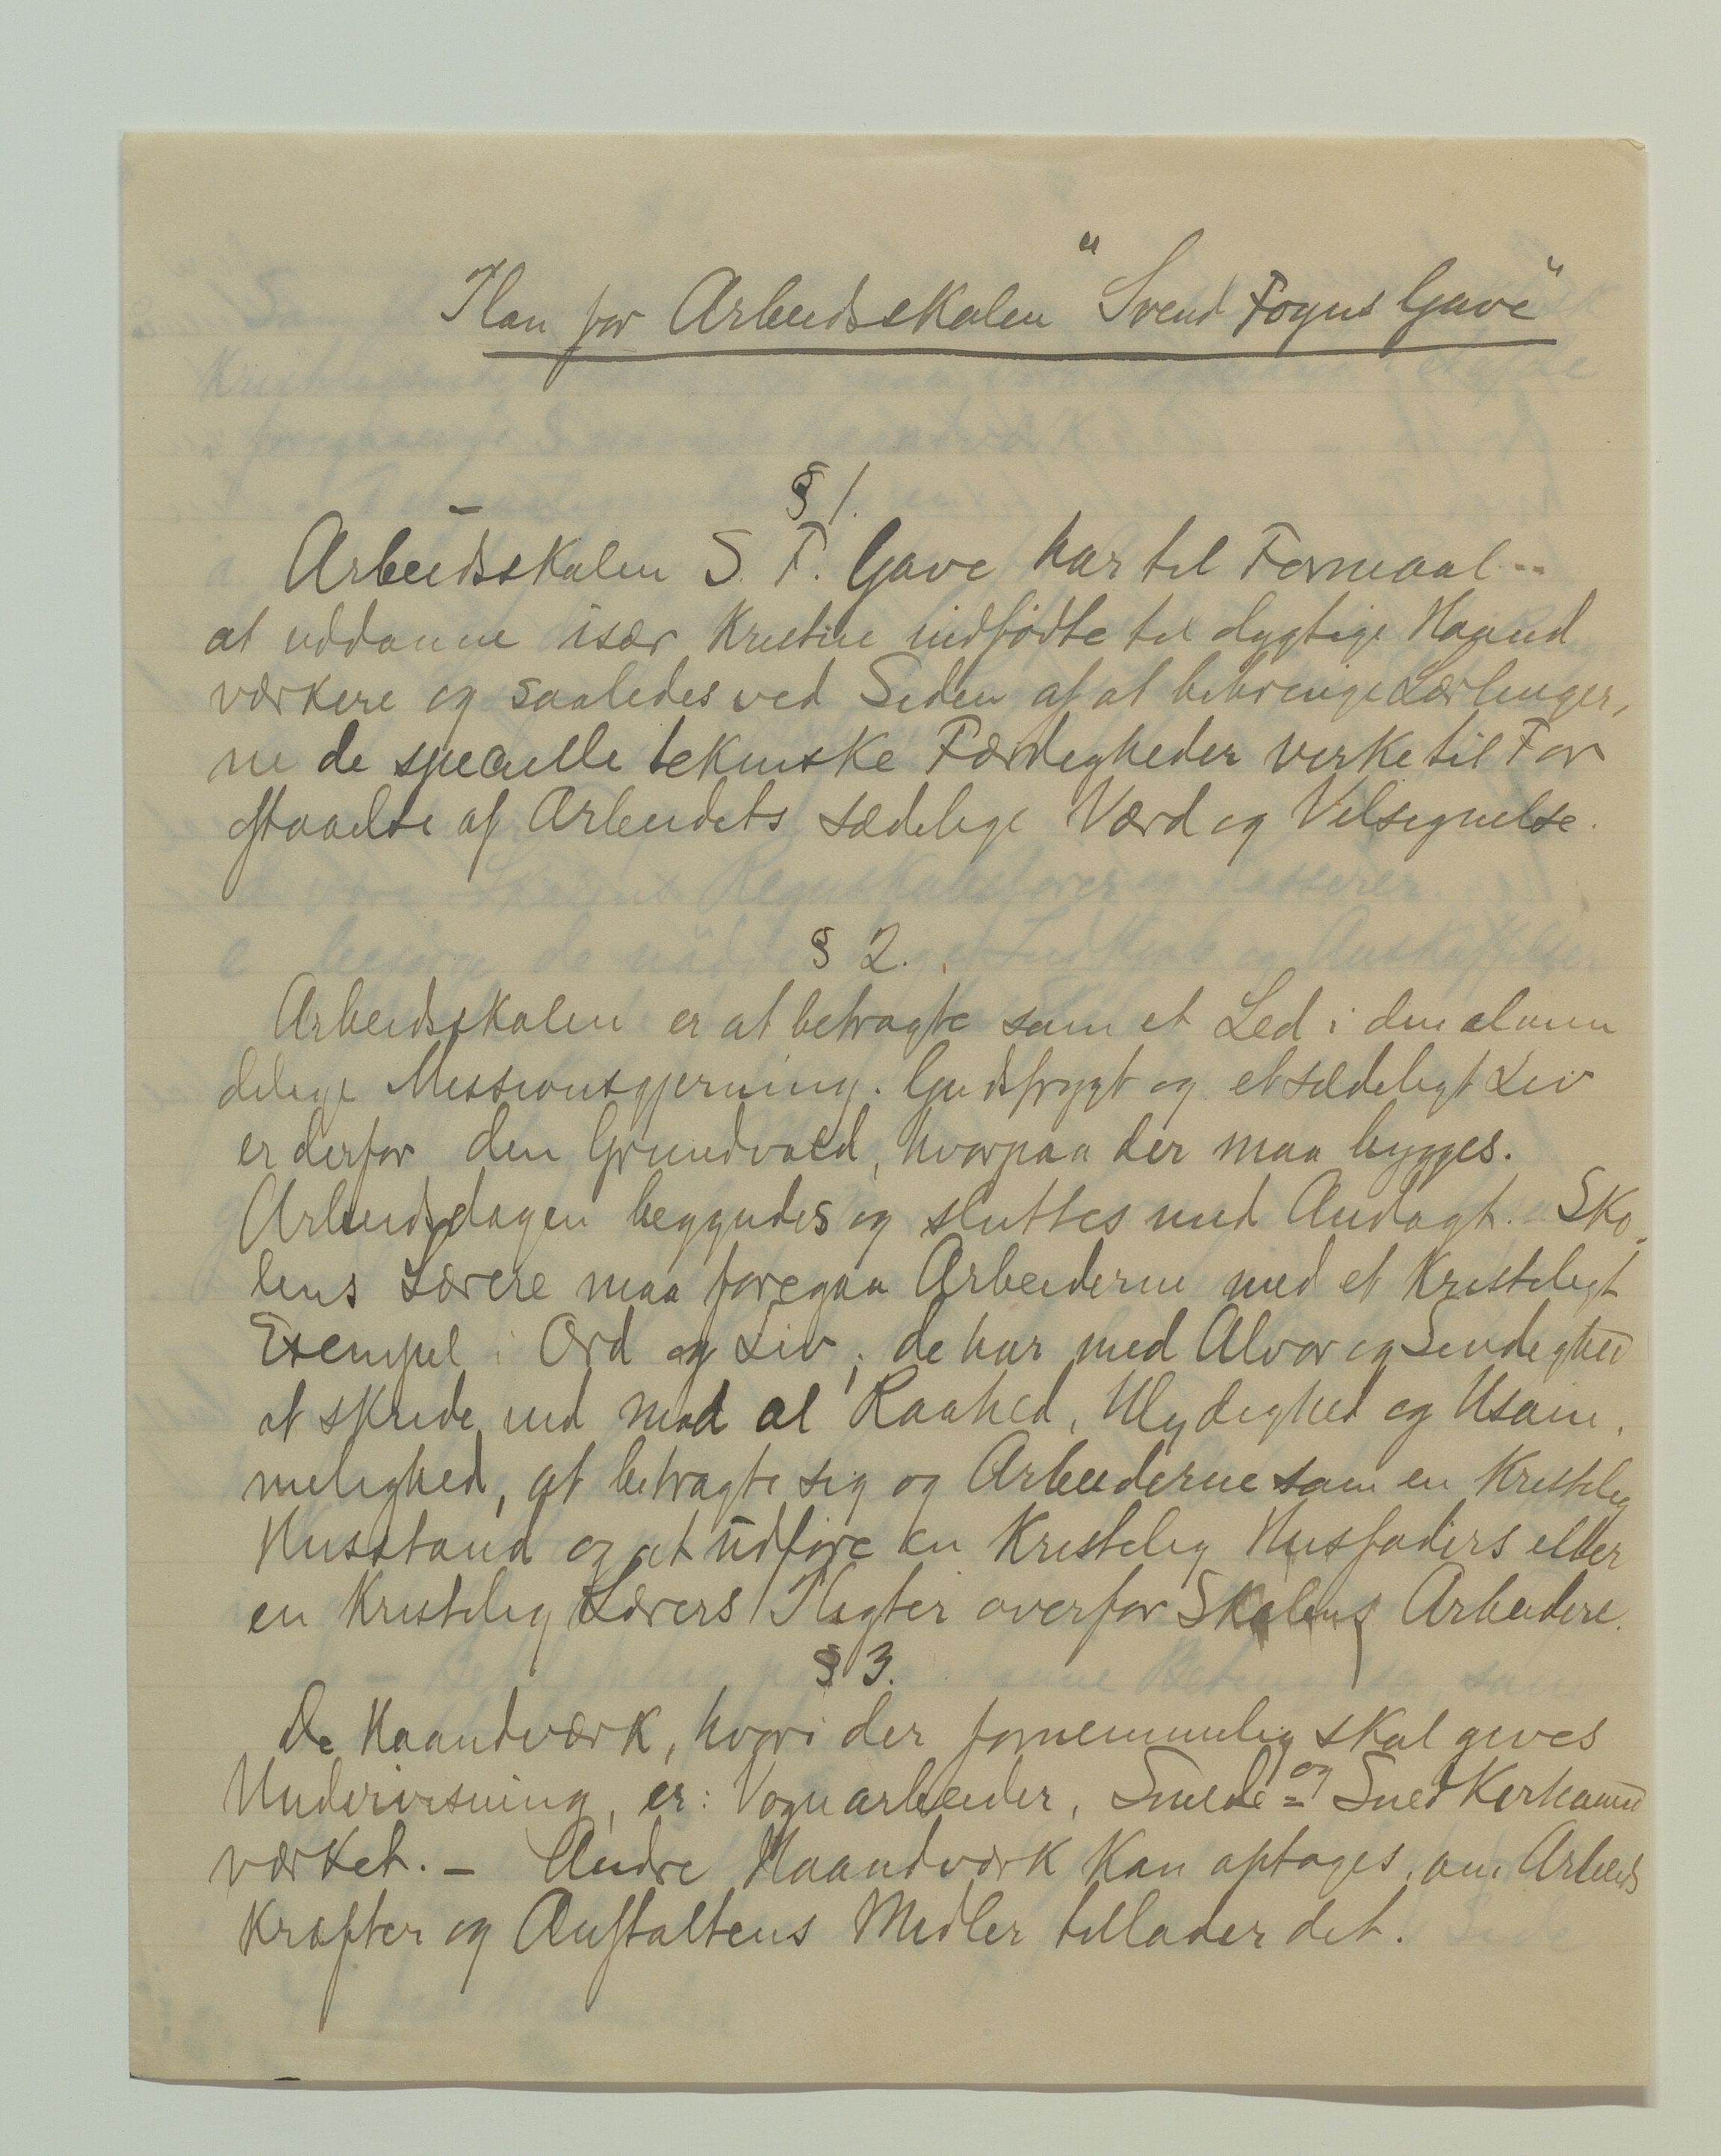 Plan for Arbeidsskolen "Svend Foyns Gave"
§ 1.
Arbeidsskolen S. F. Gave har til Formaal
at uddanne især Kristne indfødte til dygtige Haand
værkere og saaledes ved Siden af at bibringe Lærlinger,
ne de specielle tekniske Færdigheder virke til For
staaelse af Arbeidets sædelige Værd og Velsignelse.
§ 2.
Arbeidsskolen er at betragte som et Led i den almin
delige Missionsgjerning. Gudsfrygt og et sædeligt Liv
er derfor den Grundvold, hvorpaa der maa bygges.
Arbeidsdagen begyndes og sluttes med Andagt. Sko-
lens Lærere maa foregaa Arbeiderne med et Kristeligt
Exempel i Ord og Liv; de har med Alvor og Sindighed
at skride ind mod al Raahed, Ulydighed og Usøm,
melighed, at betragte sig og Arbeiderne som en Kristelig
Husstand og at udføre en Kristelig Husfaders eller
en Kristelig Lærers Pligter overfor Skolens Arbeidere.
§ 3.
De Haandværk, hvori der fornemmelig skal gives
Undervisning, er: Vognarbeider, Smede= og Snedkerhaand
værket. - Andre Haandværk kan optages, om Arbeids
kræfter og Anstaltens Midler tillader det.